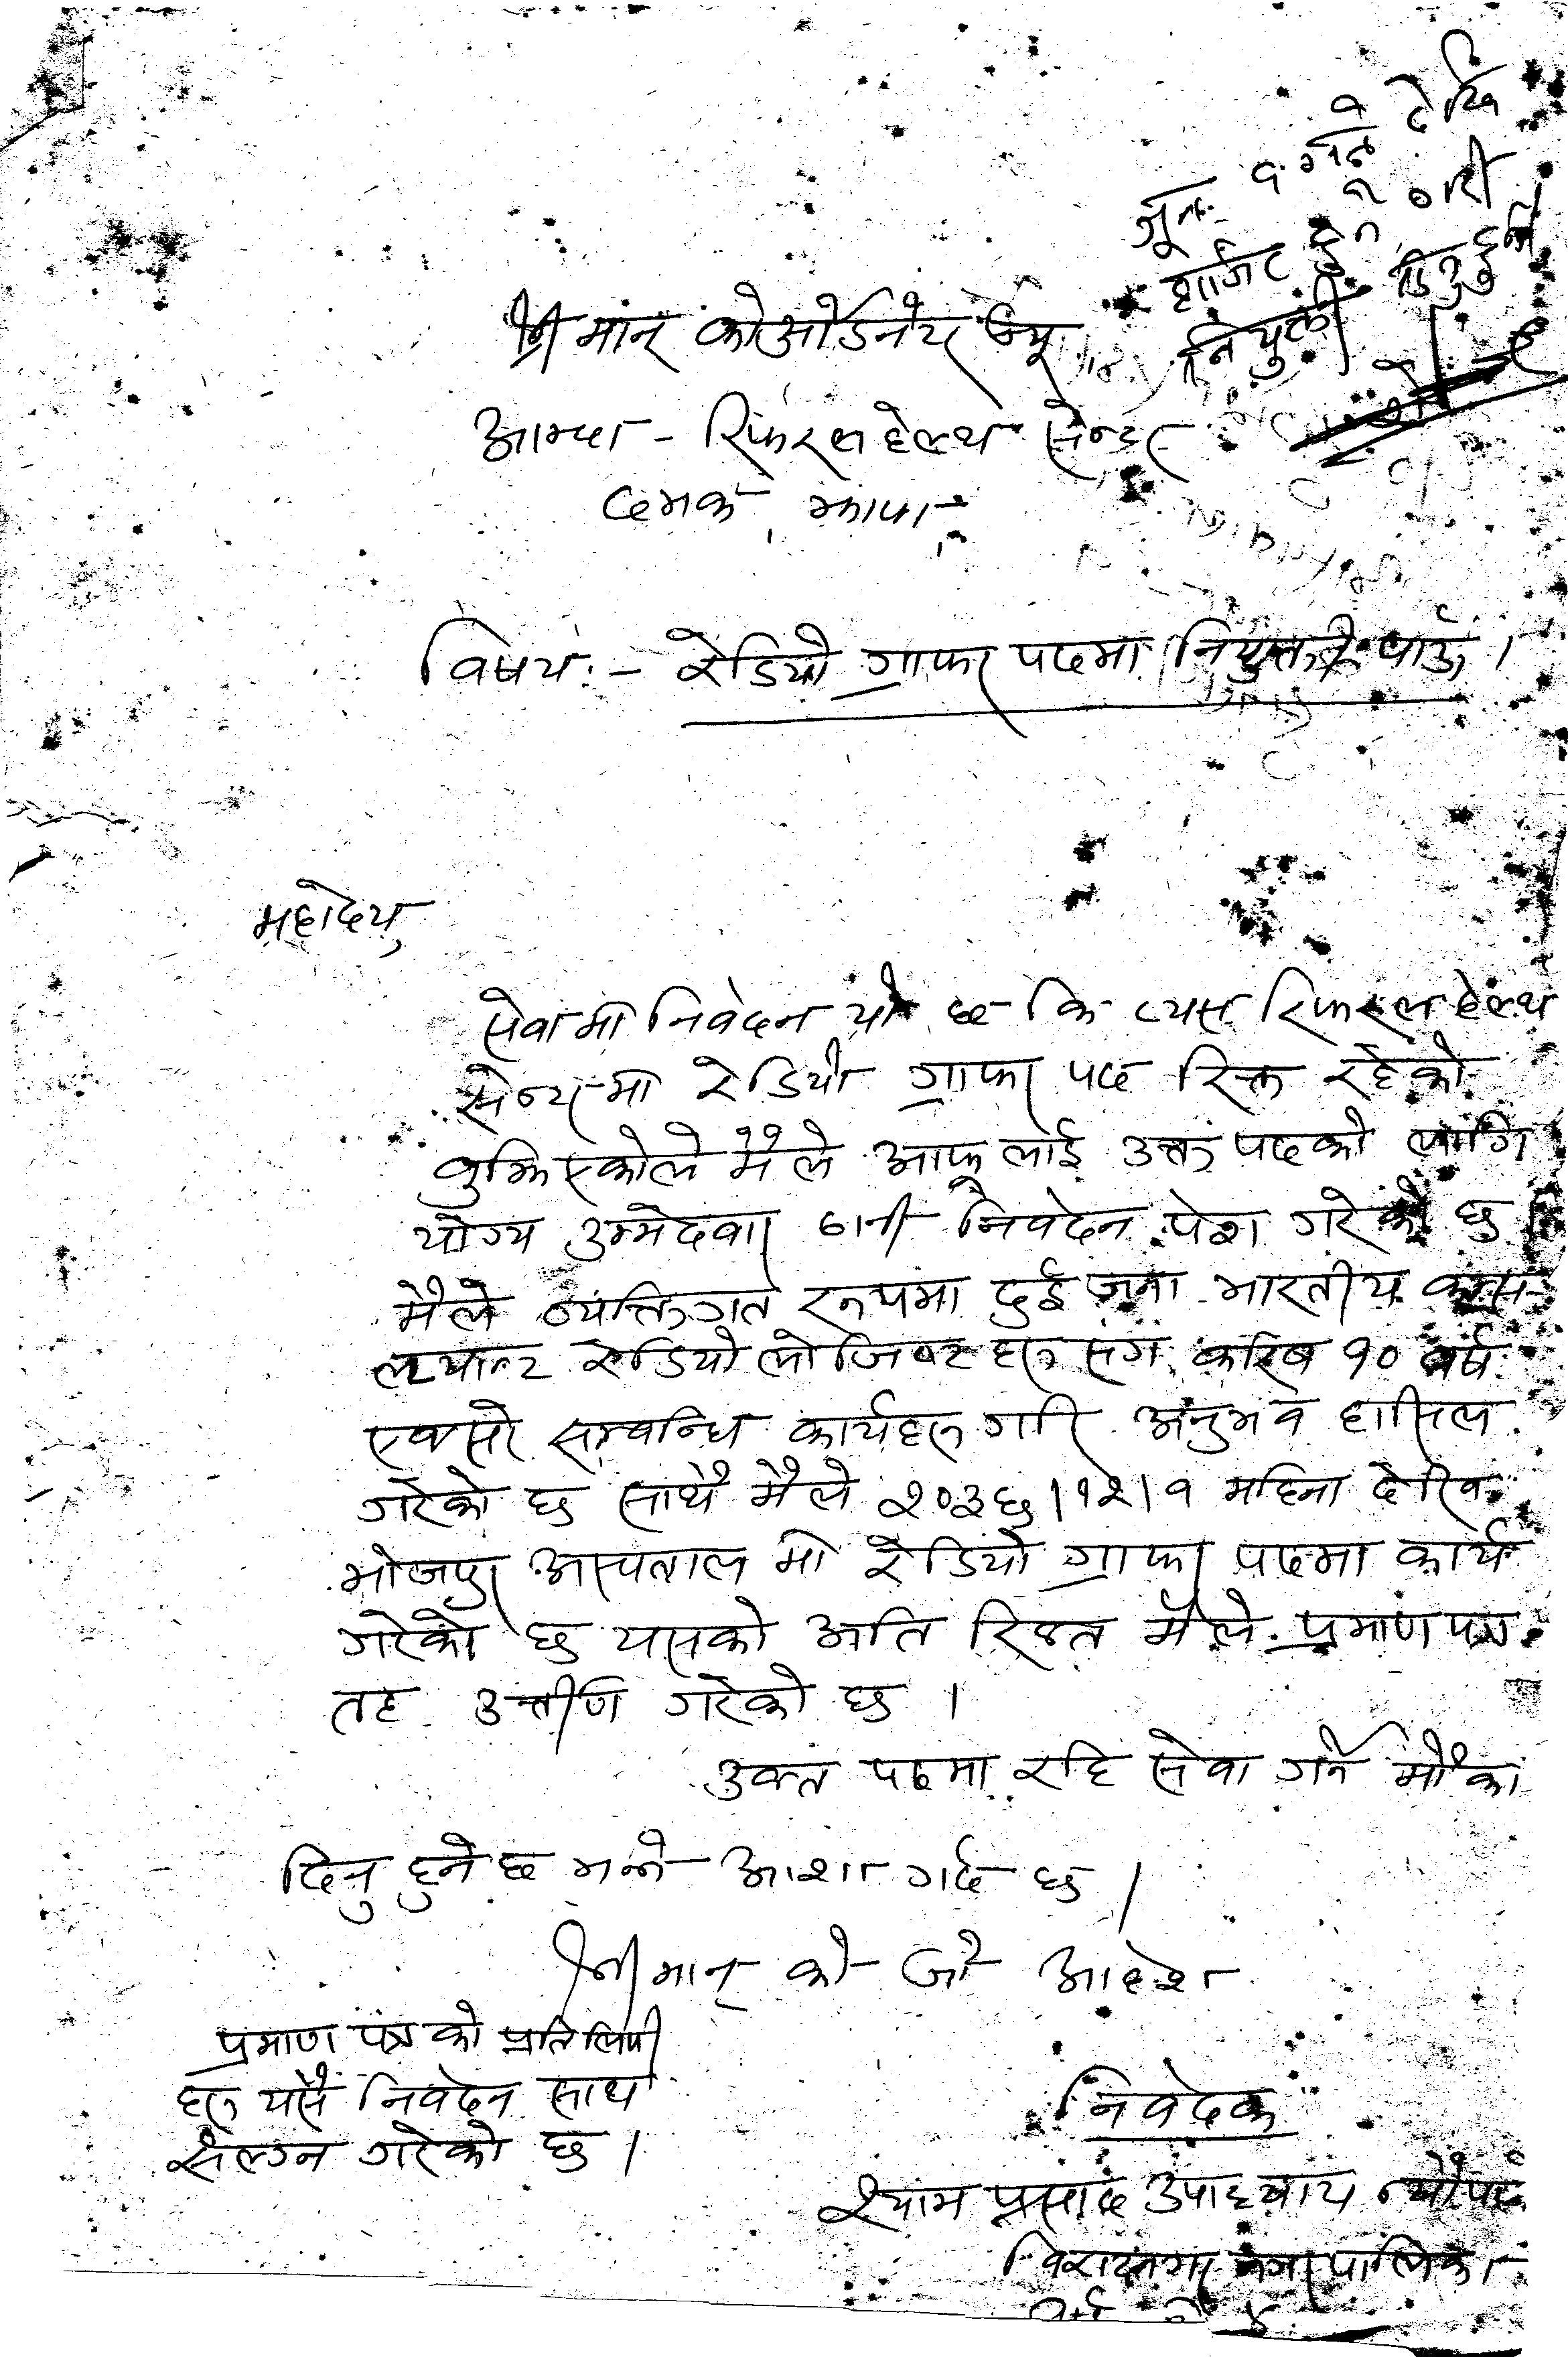 जून १ गते देखि
नियुक्ती दिनुहुन
श्री मान् कोओर्डिनेटर ज्यू
आम्दा - रिफरल हेल्थ सेन्टर
दमक, झापा
विषय :- रेडियो ग्राफर पदमा नियुक्ती पाऊँ ।
महोदय,
सेवामा निवेदन यो छ कि त्यस रिफरल हेल्थ
सेन्टरमा रेडियो ग्राफर पद रिक्त रहेको
बुझिएकोले मैले आफूलाई उक्त पदको लागि
योग्य उम्मेदवार ठानी निवेदन पेश गरेको छु ।
मैले व्यक्तिगत रूपमा दुईजना भारतीय कन्स-
ल्ट्यान्ट रेडियोलोजिष्ट हरु संग करिब १० वर्ष
एक्सरे सम्बन्धि कार्यहरु गरि अनुभव हासिल
गरेको छु साथै मैले २०३६।१२।१ महिना देखि
भोजपुर अस्पताल मा रेडियो ग्राफर पदमा कार्य
गरेको छु यसको अति रिक्त मैले प्रमाण पत्र
तह उत्तीर्ण गरेको छु ।
उक्त पदमा रहि सेवा गर्ने मौका
दिनु हुनेछ भन्ने आशा गर्द छु ।
श्रीमान् को जो आदेश
प्रमाण पत्र को प्रतिलिपी
हरु यसै निवेदन साथ
संलग्न गरेको छु ।
निवेदक
श्याम प्रसाद उपाध्याय न्यौपाने
विराटनगर नगरपालिका